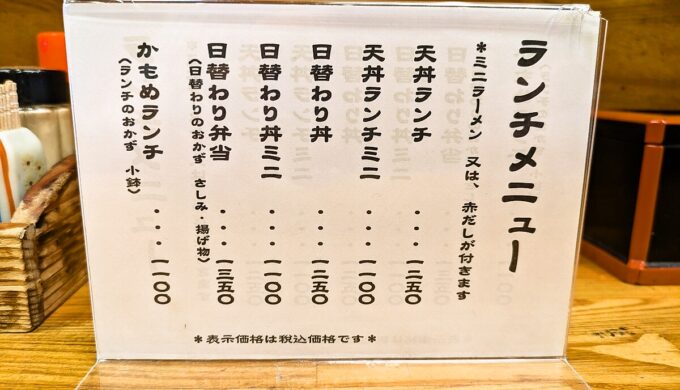 ランチメニュー
*ミニラーメン 又は、赤だしが付きます
天丼ランチ・・・一二五〇
天丼ランチミニ・・・一一〇〇
日替わり丼・・・一二五〇
日替わり丼ミニ・・・一一〇〇
日替わり弁当・・・一三五〇
(日替わりのおかず さしみ・揚げ物)
かもめランチ・・・一一〇〇
(ランチのおかず 小鉢)
*表示価格は税込価格です*